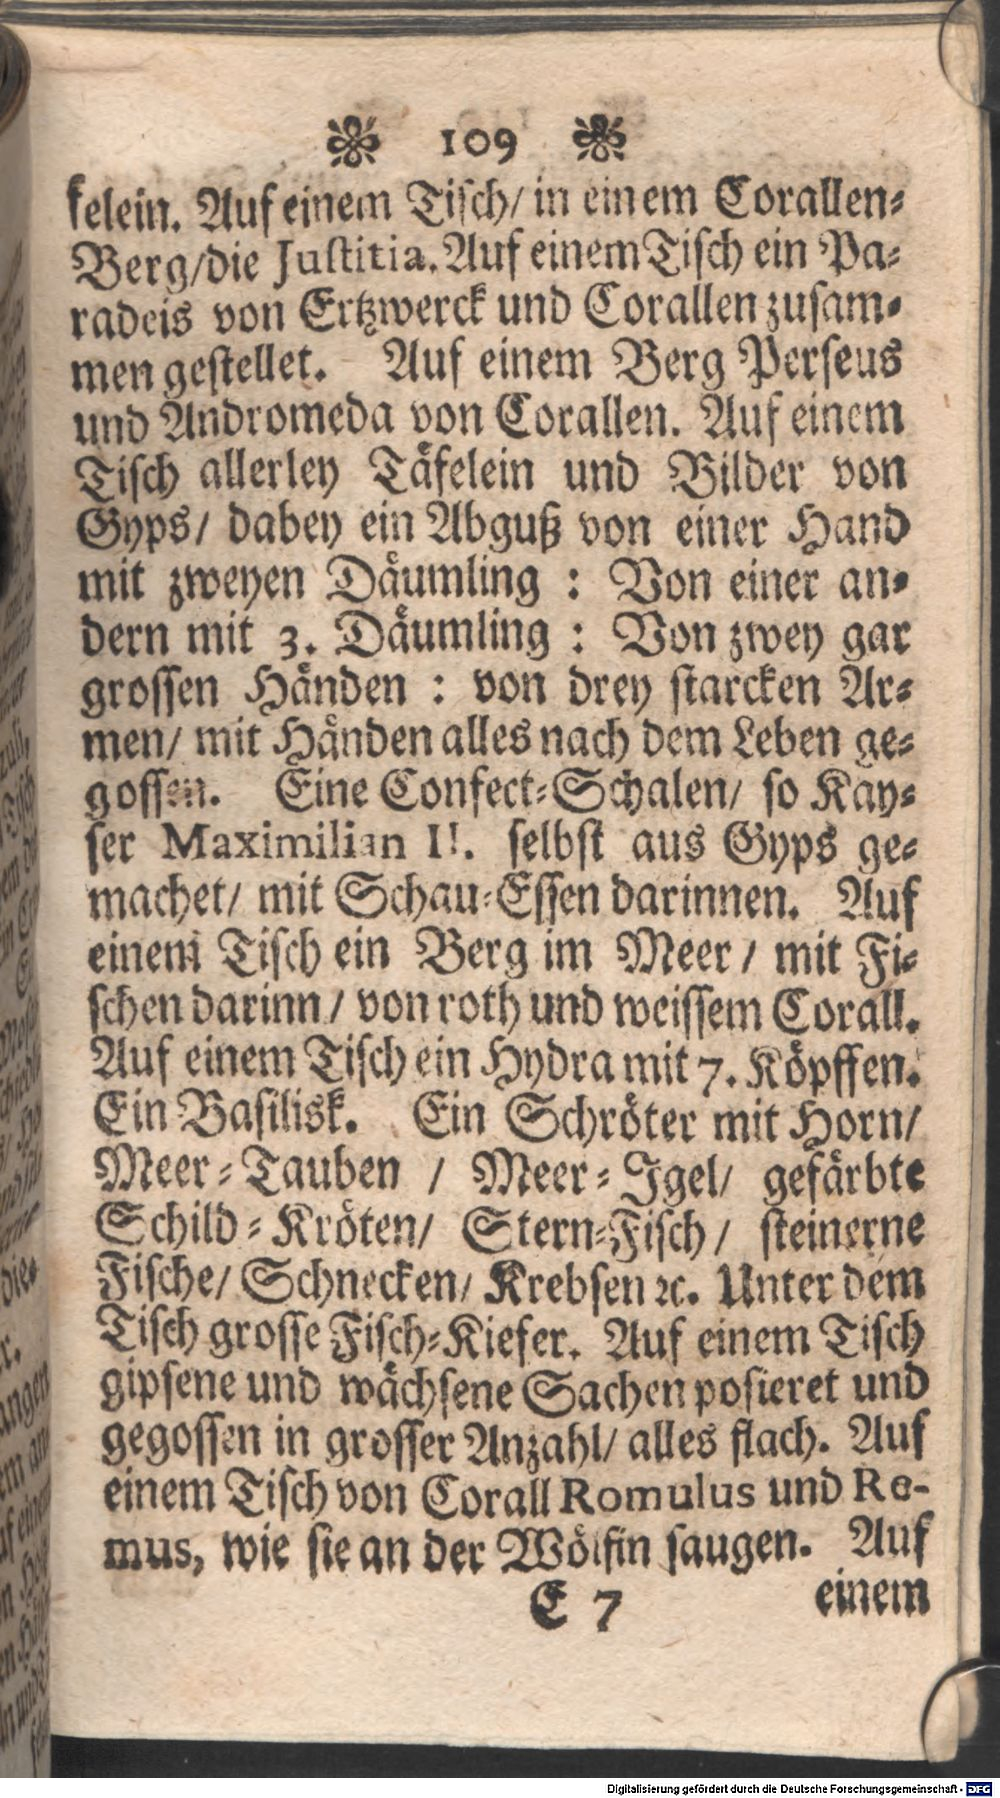 109
kelein. Auf einem Tisch/ in einem Corallen-
Berg/die Justitia. Auf einem Tisch ein Pa-
radeis von Ertzwerck und Corallen zusam-
men gestellet. Auf einem Berg Perseus
und Andromeda von Corallen. Auf einem
Tisch allerley Täfelein und Bilder von
Gyps/ dabey ein Abguß von einer Hand
mit zweyen Däumling : Von einer an-
dern mit 3. Däumling : Von zwey gar
grossen Händen : von drey starcken Ar-
men/ mit Händen alles nach dem Leben ge-
gossen. Eine Confect-Schalen/ so Kay-
ser Maximilian II. selbst aus Gyps ge-
machet/ mit Schau-Essen darinnen. Auf
einem Tisch ein Berg im Meer / mit Fi-
schen darinn/ von roth und weissem Corall.
Auf einem Tisch ein Hydra mit 7. Köpffen.
Ein Basilisk. Ein Schröter mit Horn/
Meer-Tauben / Meer-Igel/ gefärbte
Schild-Kröten/ Stern-Fisch/ steinerne
Fische/ Schnecken/ Krebsen ꝛc. Unter dem
Tisch grosse Fisch-Kiefer. Auf einem Tisch
gipsene und wächsene Sachen posieret und
gegossen in grosser Anzahl/ alles flach. Auf
einem Tisch von Corall Romulus und Re-
mus, wie sie an der Wölfin saugen. Auf
E 7 einem
Digitalisierung gefördert durch die Deutsche Forschungsgemeinschaft - DFG